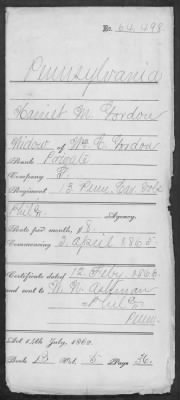 No. 64,498.
Pennsylvania
Harriet M. Gordon
Widow of Wm. F. Gordon
Rank Private
Company
Regiment 13 Penn. Cav. Vols
Phila. Agency.
Rate per month, $8.
Commencing 3 April 1865
Certificate dated 12 Feby. 1866
and sent to
Phila
Penn.
Act 14th July, 1862.
Book Vol. 5 Page 36.